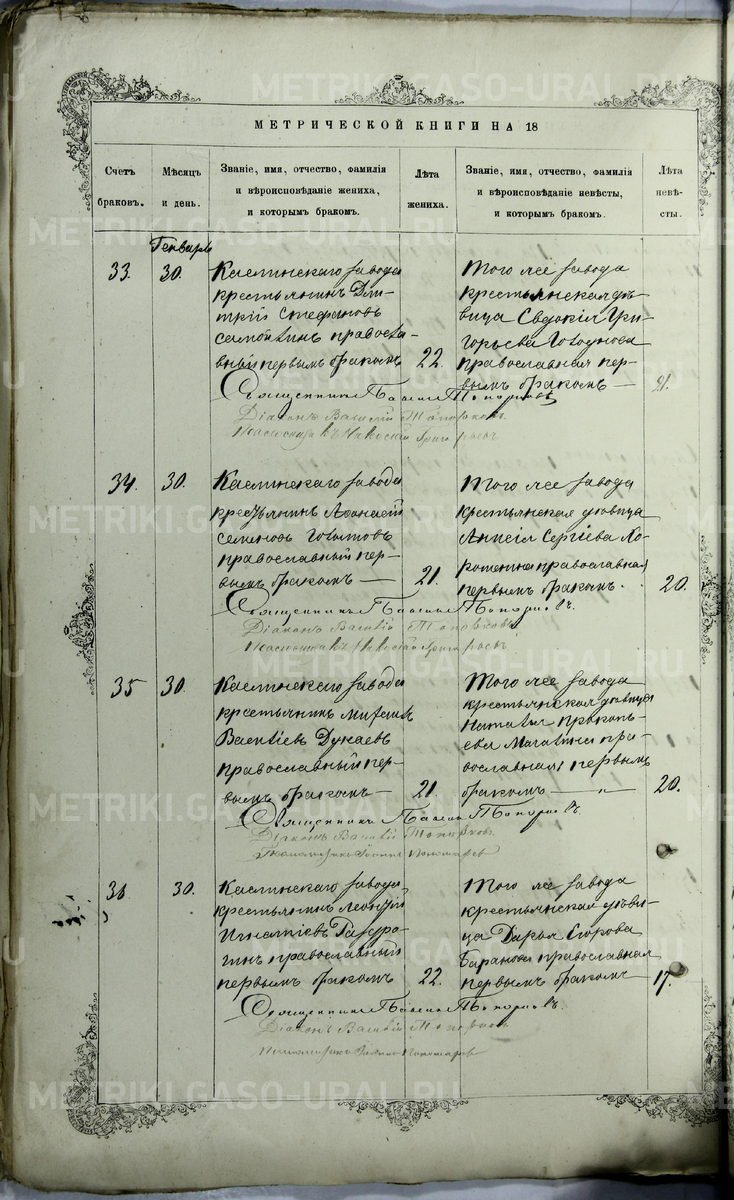 МЕТРИЧЕСКОЙ КНИГИ НА 18
Счетъ браковъ.
Мѣсяцъ и день.
Званіе, имя, отчество, фамилія и вѣроисповѣданіе жениха, и которымъ бракомъ.
Лѣта жениха.
Званіе, имя, отчество, фамилія и вѣроисповѣданіе невѣсты, и которымъ бракомъ.
Лѣта невѣсты.
Генварь
33. 30.
Каслинскаго завода
крестьянинъ Дми-
трій Стефановъ
православ-
ный первымъ бракомъ
22.
Того же завода
крестьянская дѣ-
вица Евдокія Гри-
горьева
православная пер-
вымъ бракомъ
21.
Священникъ Топорковъ
Діаконъ Василій Топорковъ
34. 30.
Каслинскаго завода
крестьянинъ Аѳанасій
Семеновъ
православный пер-
вымъ бракомъ
21.
Того же завода
крестьянская дѣвица
Анисія Сергіева
православная
первымъ бракомъ.
20.
Священникъ Топорковъ.
Діаконъ Василій Топорковъ
35 30.
Каслинскаго завода
крестьянинъ Михаилъ
Васильевъ Дунаевъ
православный пер-
вымъ бракомъ
21.
Того же завода
крестьянская дѣвица
Наталья Прокопь-
ева пра-
вославная первымъ
бракомъ
20.
Священникъ Топорковъ.
Діаконъ Василій Топорковъ
36 30.
Каслинскаго завода
крестьянинъ Леонтій
Игнатіевъ
православный
первымъ бракомъ
22.
Того же завода
крестьянская дѣви-
ца Дарья
Баранова православная
первымъ бракомъ
17.
Священникъ Топорковъ.
Діаконъ Василій Топорковъ
METRIKI.GASO-URAL.RU